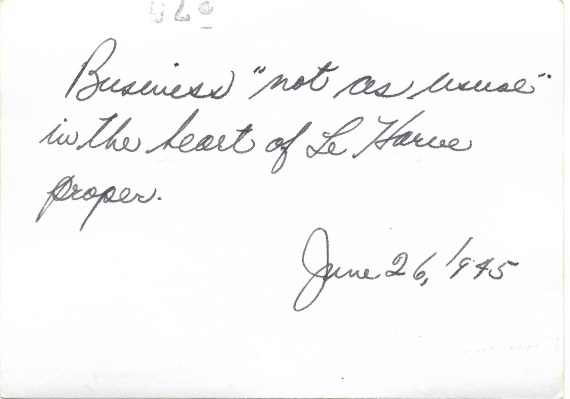 Business "not as usual"
in the heart of Le Harve
proper.
June 26, 1945